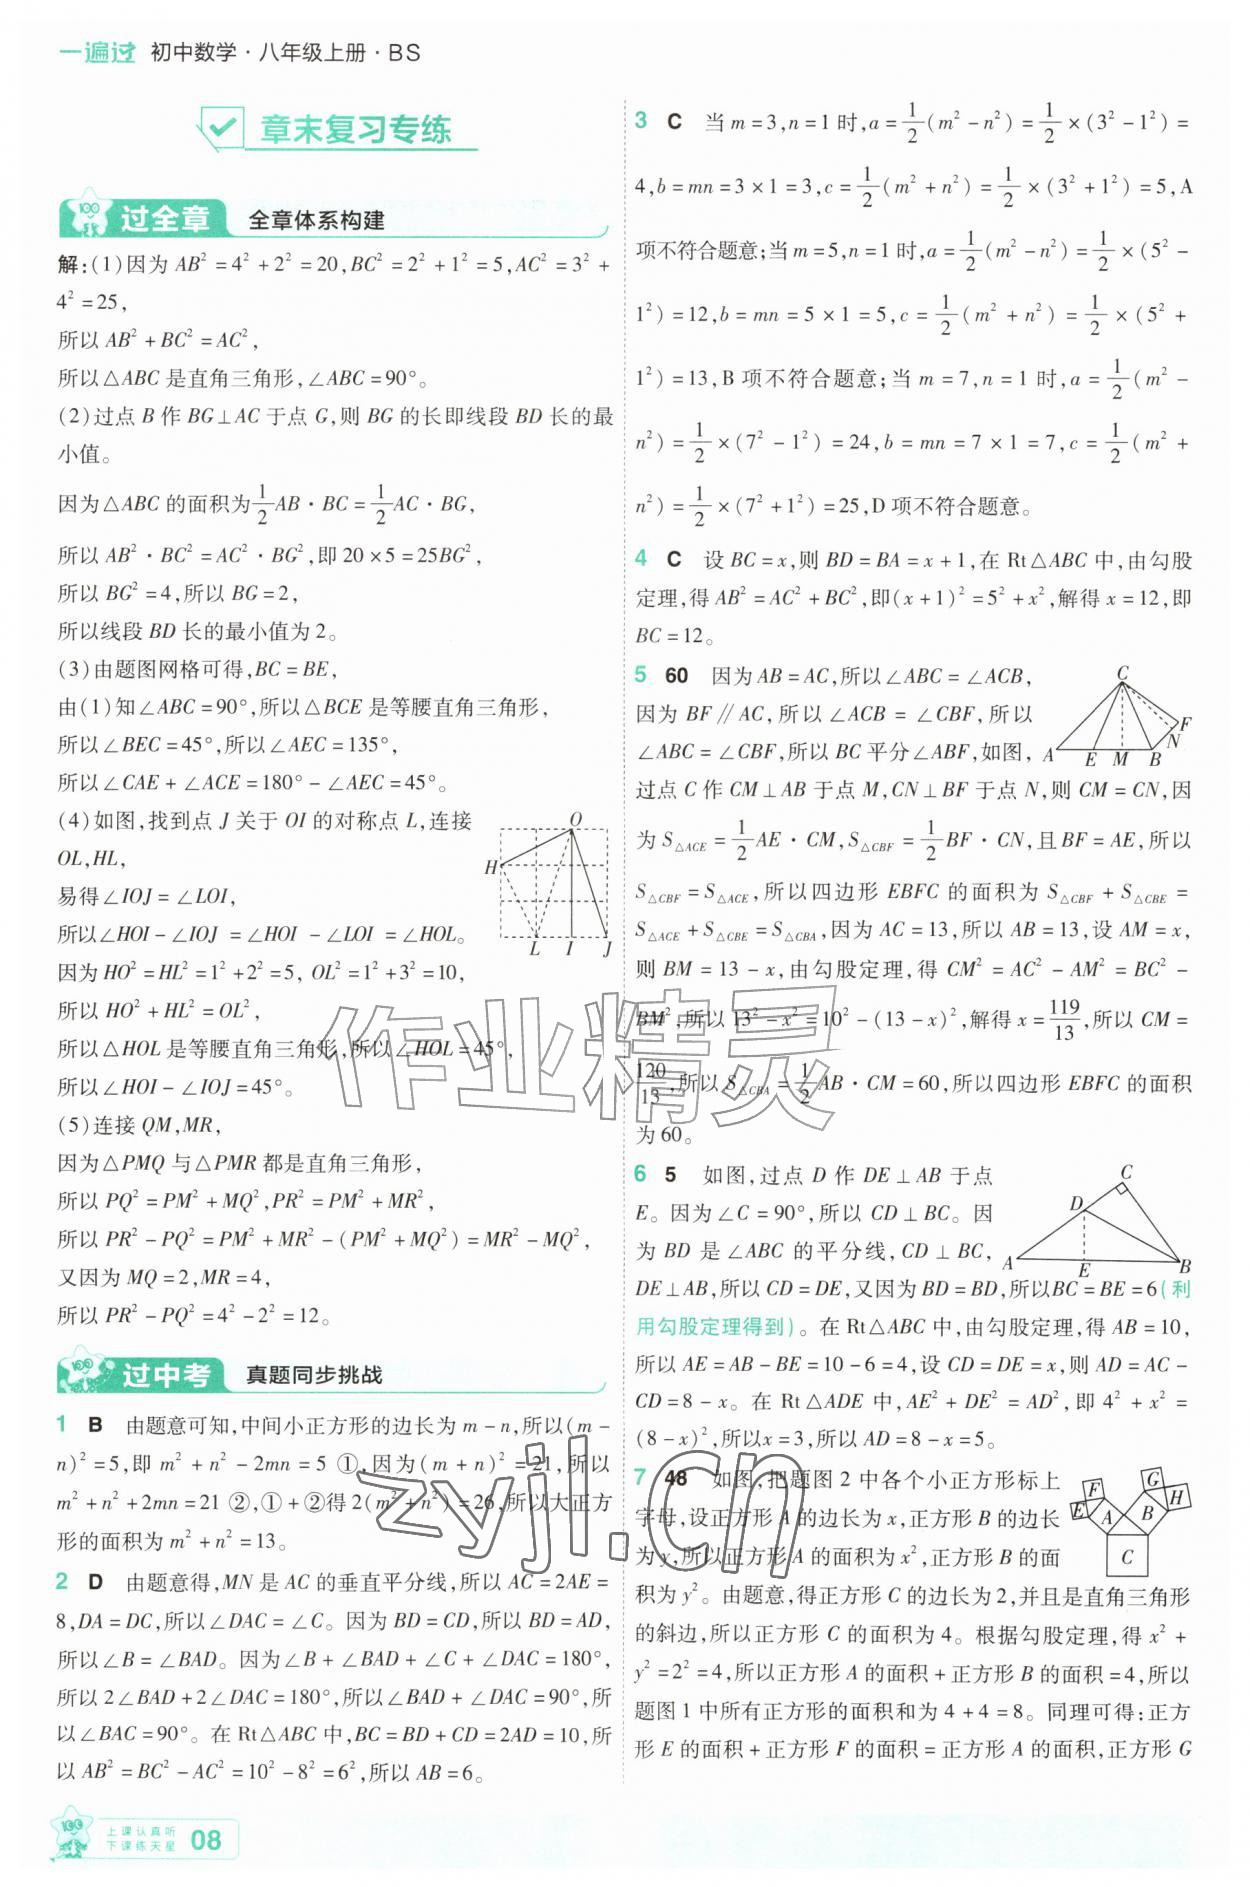 一遍过 初中数学·八年级上册·BS
章末复习专练
过全章 全章体系构建
解:(1)因为 AB²=4²+2²=20,BC²=2²+1²=5,AC²=3²+
4²=25,
所以 AB²+BC²=AC²,
所以△ABC 是直角三角形,∠ABC=90°。
(2)过点 B 作 BG⊥AC 于点 G,则 BG 的长即线段 BD 长的最
小值。
因为△ABC 的面积为1/2AB·BC=1/2AC·BG,
所以 AB²·BC²=AC²·BG²,即 20×5=25BG²,
所以 BG²=4,所以 BG=2,
所以线段 BD 长的最小值为 2。
(3)由题图网格可得,BC=BE,
由(1)知∠ABC=90°,所以△BCE 是等腰直角三角形,
所以∠BEC=45°,所以∠AEC=135°,
所以∠CAE+∠ACE=180°-∠AEC=45°。
(4)如图,找到点 J 关于 OI 的对称点 L,连接
OL,HL,
易得∠IOJ=∠LOI,
所以∠HOI-∠IOJ=∠HOI-∠LOI=∠HOL。
因为 HO²=HL²=1²+2²=5, OL²=1²+3²=10,
所以 HO²+HL²=OL²,
所以△HOL 是等腰直角三角形,所以∠HOL=45°,
所以∠HOI-∠IOJ=45°。
O
H
L I J
(5)连接 QM,MR,
因为△PMQ 与△PMR 都是直角三角形,
所以 PQ²=PM²+MQ²,PR²=PM²+MR²,
所以 PR²-PQ²=PM²+MR²-(PM²+MQ²)=MR²-MQ²,
又因为 MQ=2,MR=4,
所以 PR²-PQ²=4²-2²=12。
过中考 真题同步挑战
1 B 由题意可知,中间小正方形的边长为 m-n,所以(m-
n)²=5,即 m²+n²-2mn=5 ①,因为(m+n)²=21,所以
m²+n²+2mn=21 ②,①+②得 2(m²+n²)=26,所以大正方
形的面积为 m²+n²=13。
2 D 由题意得,MN 是 AC 的垂直平分线,所以 AC=2AE=
8,DA=DC,所以∠DAC=∠C。因为 BD=CD,所以 BD=AD,
所以∠B=∠BAD。因为∠B+∠BAD+∠C+∠DAC=180°,
所以 2∠BAD+2∠DAC=180°,所以∠BAD+∠DAC=90°,所
以∠BAC=90°。在 Rt△ABC 中,BC=BD+CD=2AD=10,所
以 AB²=BC²-AC²=10²-8²=6²,所以 AB=6。
3 C 当 m=3,n=1 时,a=1/2(m²-n²)=1/2×(3²-1²)=
4,b=mn=3×1=3,c=1/2(m²+n²)=1/2×(3²+1²)=5,A
项不符合题意;当 m=5,n=1 时,a=1/2(m²-n²)=1/2×(5²-
1²)=12,b=mn=5×1=5,c=1/2(m²+n²)=1/2×(5²+
1²)=13,B 项不符合题意;当 m=7,n=1 时,a=1/2(m²-
n²)=1/2×(7²-1²)=24,b=mn=7×1=7,c=1/2(m²+
n²)=1/2×(7²+1²)=25,D 项不符合题意。
4 C 设 BC=x,则 BD=BA=x+1,在 Rt△ABC 中,由勾股
定理,得 AB²=AC²+BC²,即(x+1)²=5²+x²,解得 x=12,即
BC=12。
5 60 因为 AB=AC,所以∠ABC=∠ACB,
因为 BF∥AC,所以∠ACB=∠CBF,所以
∠ABC=∠CBF,所以 BC 平分∠ABF,如图,
C
F
N
A E M B
过点 C 作 CM⊥AB 于点 M,CN⊥BF 于点 N,则 CM=CN,因
为 S△ACE=1/2AE·CM,S△CBF=1/2BF·CN,且 BF=AE,所以
S△CBF=S△ACE,所以四边形 EBFC 的面积为 S△CBF+S△CBE=
S△ACE+S△CBE=S△CBA,因为 AC=13,所以 AB=13,设 AM=x,
则 BM=13-x,由勾股定理,得 CM²=AC²-AM²=BC²-
BM²,所以 13²-x²=10²-(13-x)²,解得 x=119/13,所以 CM=
120/13,所以 S△CBA=1/2AB·CM=60,所以四边形 EBFC 的面积
为 60。
6 5 如图,过点 D 作 DE⊥AB 于点
E。因为∠C=90°,所以 CD⊥BC。因
为 BD 是∠ABC 的平分线,CD⊥BC,
C
D
A E B
DE⊥AB,所以 CD=DE,又因为 BD=BD,所以BC=BE=6(利
用勾股定理得到)。在 Rt△ABC 中,由勾股定理,得 AB=10,
所以 AE=AB-BE=10-6=4,设 CD=DE=x,则 AD=AC-
CD=8-x。在 Rt△ADE 中,AE²+DE²=AD²,即 4²+x²=
(8-x)²,所以x=3,所以 AD=8-x=5。
7 48 如图,把题图 2 中各个小正方形标上
字母,设正方形 A 的边长为 x,正方形 B 的边长
为 y,所以正方形 A 的面积为 x²,正方形 B 的面
F G
E H
A B
C
积为 y²。由题意,得正方形 C 的边长为 2,并且是直角三角形
的斜边,所以正方形 C 的面积为 4。根据勾股定理,得 x²+
y²=2²=4,所以正方形 A 的面积+正方形 B 的面积=4,所以
题图 1 中所有正方形的面积和为 4+4=8。同理可得:正方
形 E 的面积+正方形 F 的面积=正方形 A 的面积,正方形 G
作业精灵
zyjl.cn
上课认真听
下课练天星
08